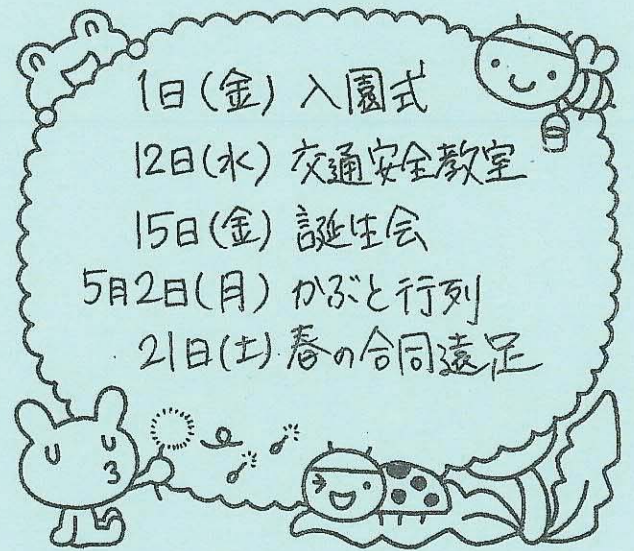 1日(金) 入園式
12日(水) 交通安全教室
15日(金) 誕生会
5月2日(月) かぶと行列
21日(土) 春の合同遠足